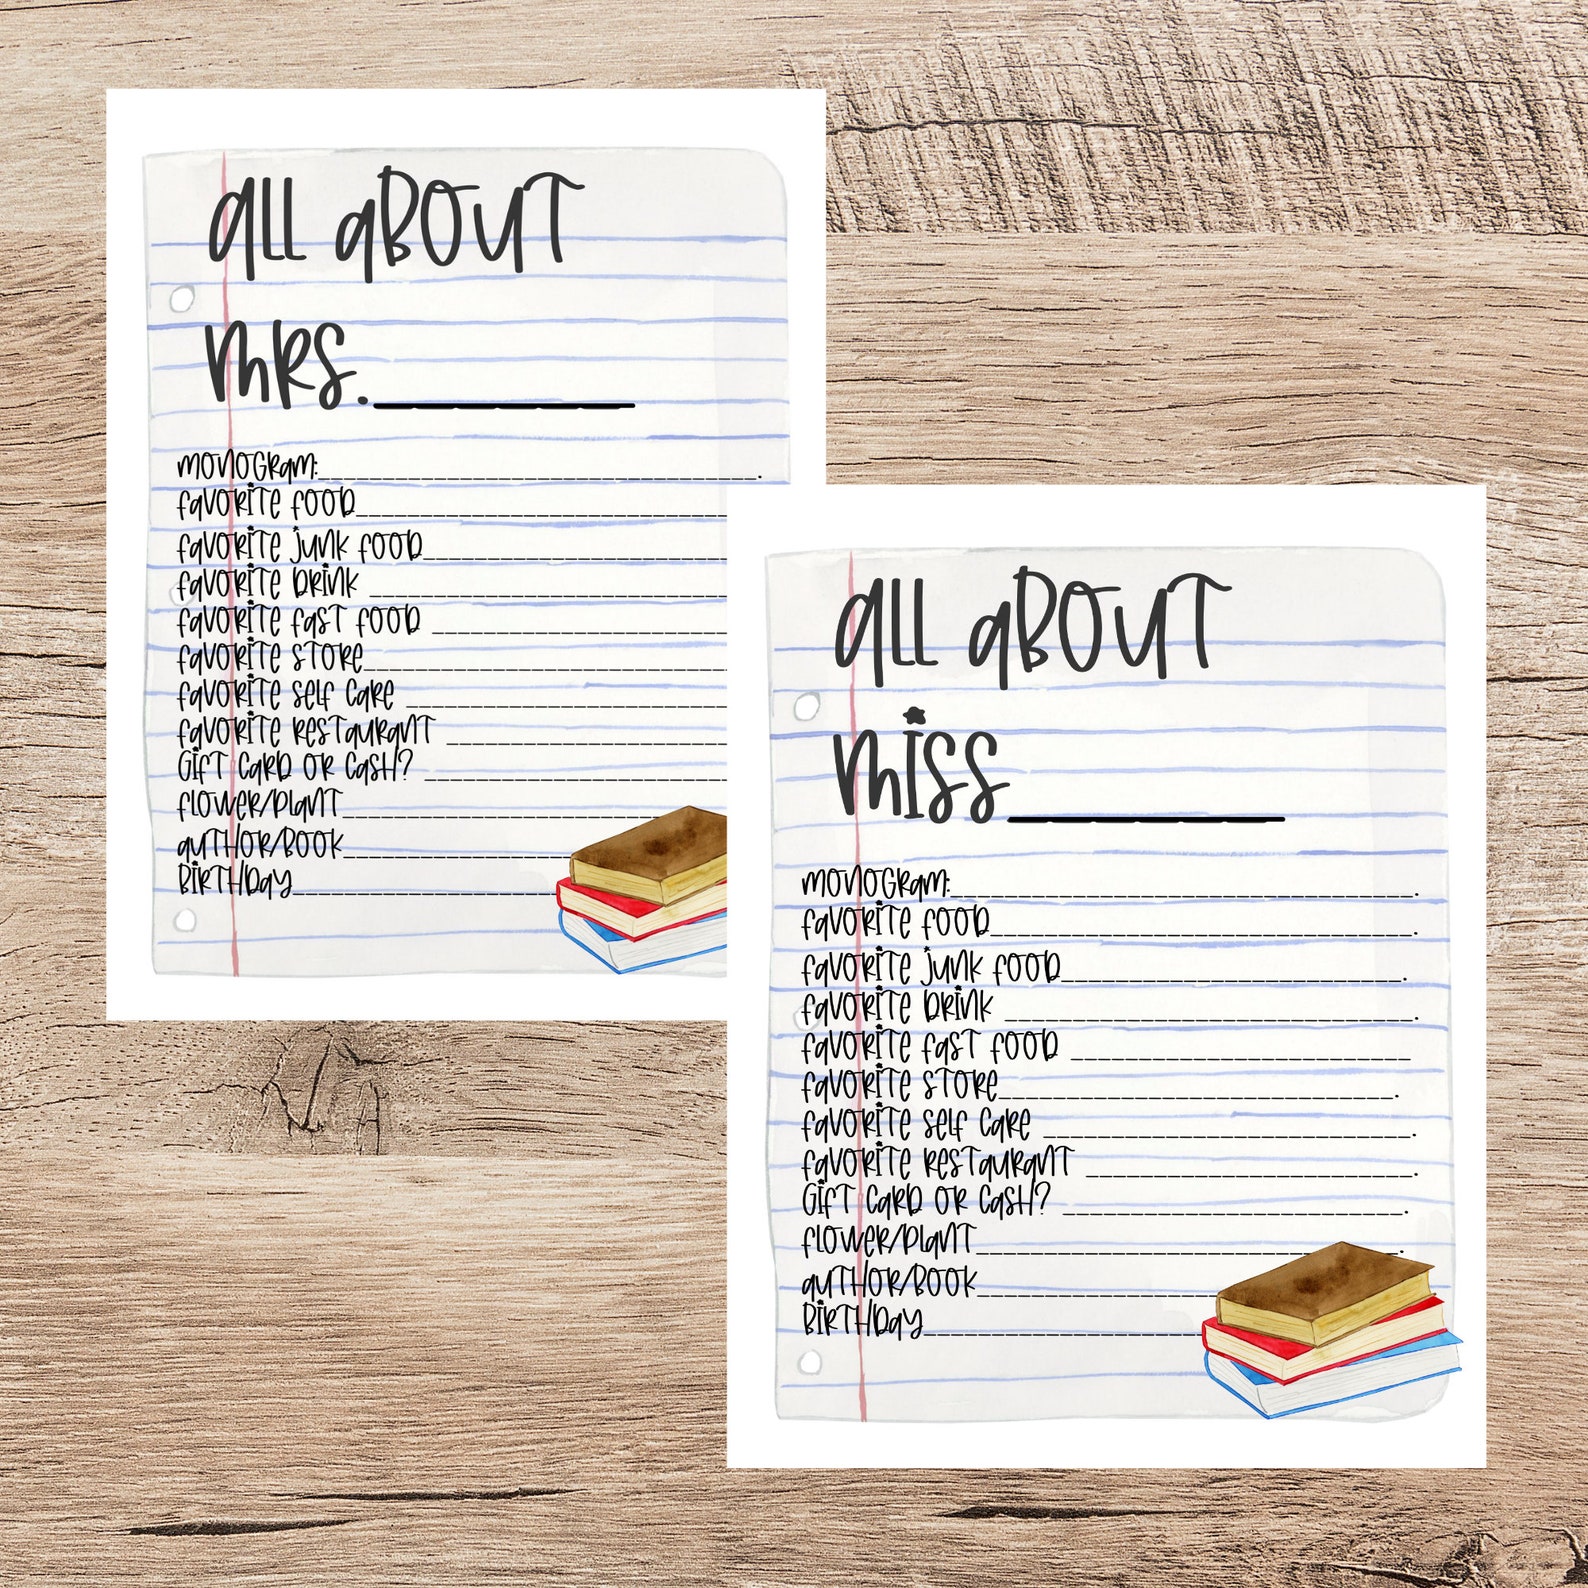 all about
mrs.__________
monogram:______________________________.
favorite food____________________________
favorite junk food_______________________
favorite drink __________________________
favorite fast food ______________________
favorite store___________________________
favorite self care ______________________
favorite restaurant _____________________
Gift card or cash? ______________________
flower/plant____________________________
author/book__________________
Birthday_____________________
all about
miss__________
monogram:______________________________.
favorite food____________________________.
favorite junk food_______________________.
favorite drink __________________________.
favorite fast food ______________________
favorite store___________________________.
favorite self care ______________________.
favorite restaurant _____________________.
Gift card or cash? ______________________.
flower/plant____________________________.
author/book__________________
Birthday_____________________